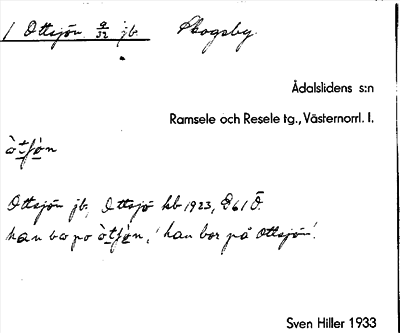 1 Ottsjön 9/32 jb. Skogsby.
Ådalslidens s:n
Ramsele och Resele tg., Västernorrl. l.
òtʃo̱n
Ottsjön jb, Ottsjö kb 1923, 261 Ö.
han bor po òtʃo̱n, 'han bor på Ottsjön'.
Sven Hiller 1933